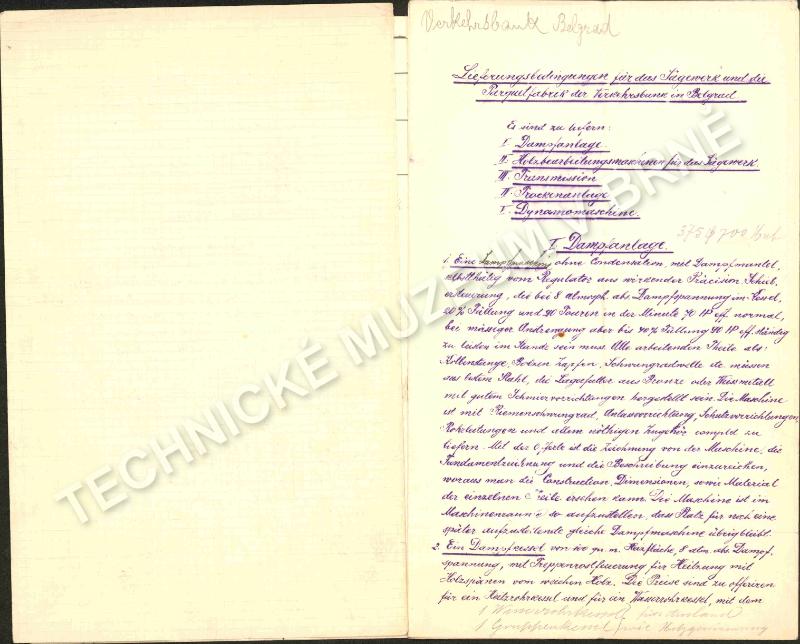 Verkehrsbank Belgrad
Lieferungsbedingungen für das Sägewerk und die
Parquetfabrik der Verkehrsbank in Belgrad
Es sind zu liefern:
I. Dampfanlage.
II. Holzbearbeitungsmaschinen für das Sägewerk.
III. Transmission
IV. Trockenanlage
V. Dynamomaschine.
375 φ 700 Hub
I. Dampfanlage.
1. Eine Dampfmaschine ohne Condensation, mit Dampfmantel,
selbstthätig vom Regulator aus wirkender Präcision Schub-
ersteuerung, die bei 8 atmosph. abs. Dampfspannung im Kessel,
20% Füllung und 90 Touren in der Minute 70 HP eff. normal,
bei mässiger Anstrengung aber bis 40% Füllung 90 HP eff. ständig
zu leisten im Stande sein muss. Alle arbeitenden Theile als:
Kolbenstange, Bolzen Zapfen, Schwungradwelle etc müssen
aus bestem Stahl, die Lagerfutter aus Bronze oder Weissmetall
mit guten Schmiervorrichtungen hergestellt sein. Die Maschine
ist mit Riemenschwungrad, Anlassvorrichtung, Schutzvorrichtungen,
Rohrleitungen und allem nöthigen Zugehör complet zu
liefern. Mit der Offerte ist die Zeichnung von der Maschine, die
Fundamentzeichnung und die Beschreibung einzureichen,
woraus man die Construction, Dimensionen, sowie Material
der einzelnen Theile ersehen kann. Die Maschine ist im
Maschinenraume so aufzustellen, dass Platz für noch eine
später aufzustellende gleiche Dampfmaschine übrigbleibt.
2. Ein Dampfkessel von 100 qu. m. Heizfläche, 8 atm. abs. Dampf-
spannung, mit Treppenrostfeuerung für Heizung mit
Holzspänen vom weichen Holz. Die Preise sind zu offeriren
für ein Heizrohrkessel und für ein Wasserrohrkessel, mit dem
1 Wasserrohrkessel
1 Gruppenkessel
TECHNICKÉ MUZEUM V BRNĚ